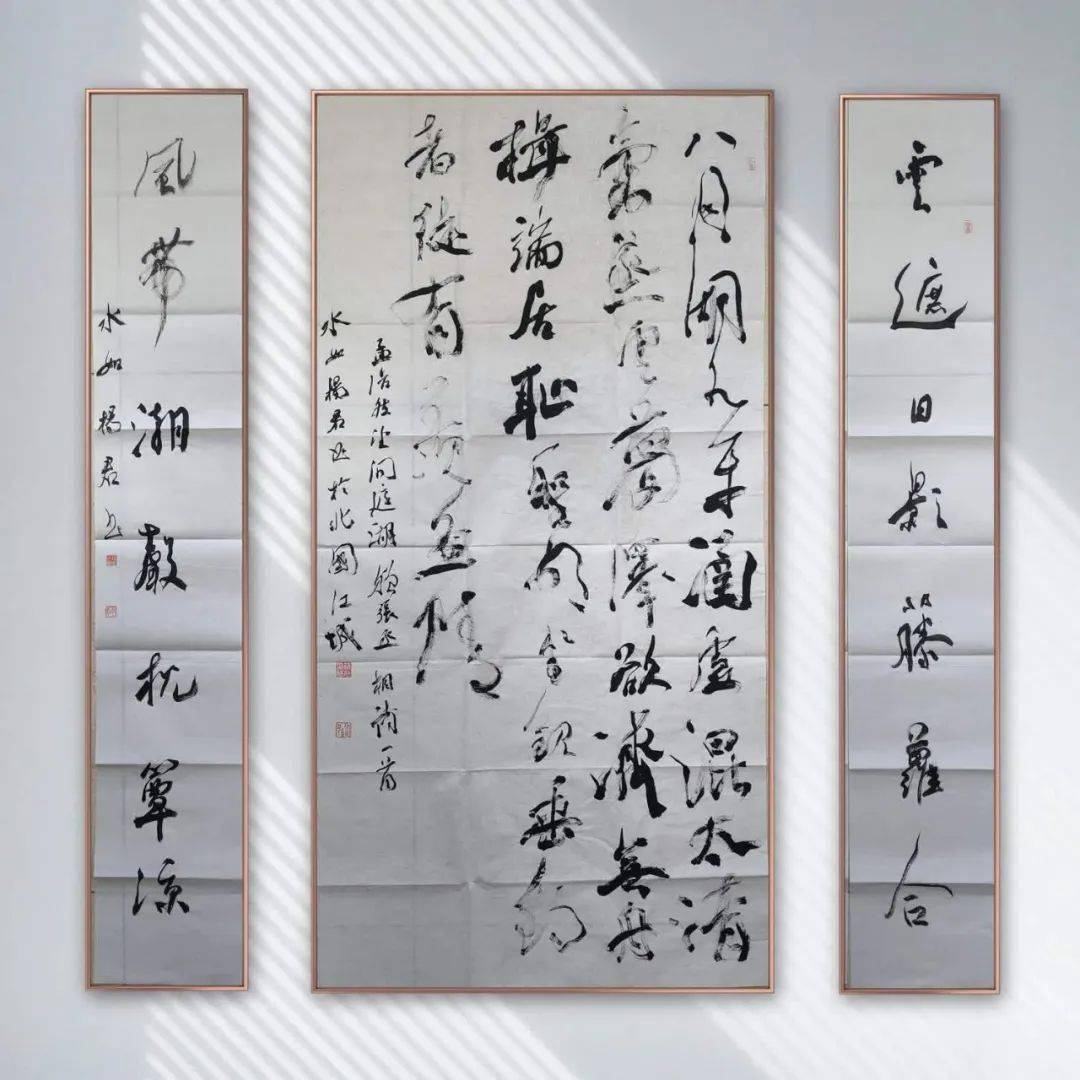 雲遮日影藤蘿合
八月湖水平涵虛混太清
氣蒸雲夢澤欲濟無舟
楫端居恥聖明坐觀垂釣
者徒有羨魚情
孟浩然望洞庭湖贈張丞相詩一首
水如楊君書於北國江城
風帶潮聲枕簟涼
水如楊君書